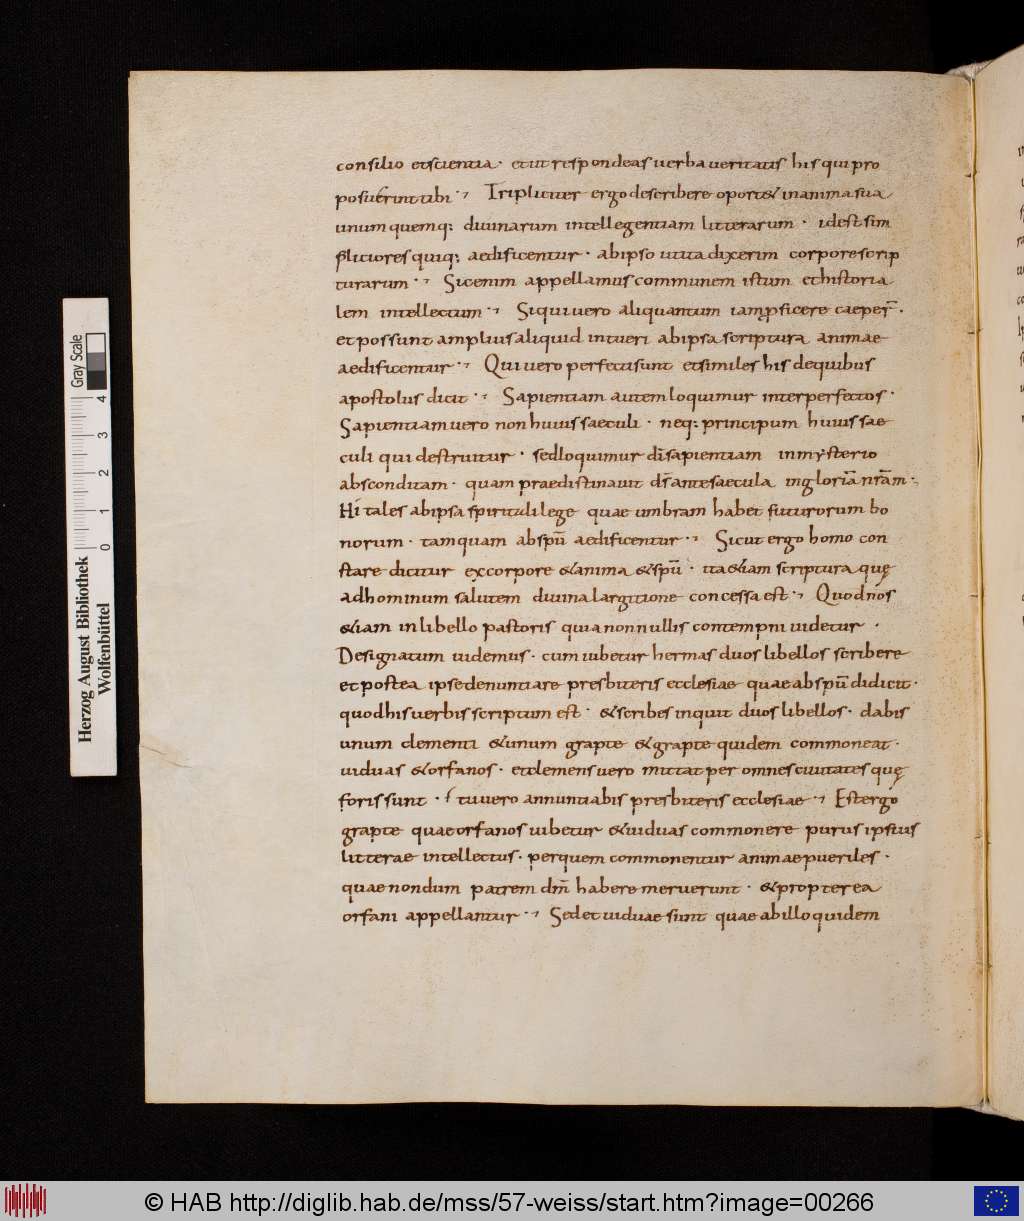 consilio et scientia · et ut respondeas uerba ueritatis his qui pro
posuerint tibi ·, Tripliciter ergo describere oport& in anima sua
unumquemq; diuinarum intellegentiam litterarum · id est sim
pliciores quiq; aedificentur · ab ipso ut ita dixerim corpore scrip
turarum ·, Sic enim appellamus communem istum et historia
lem intellectum ·, Si qui uero aliquantum iam proficere caeper̄ ·
et possunt amplius aliquid intueri ab ipsa scriptura animae
aedificentur ·, Qui uero perfecti sunt et similes his de quibus
apostolus dicit ·, Sapientiam autem loquimur inter perfectos ·
Sapientiam uero non huius saeculi · neq; principum huius sae
culi qui destruitur · sed loquimur dī sapientiam in mysterio
absconditam · quam praedistinauit ds̄ ante saecula in gloriā nrām ·
Hi tales ab ipsa spiritali lege quae umbram habet futurorum bo
norum · tamquam ab spū aedificentur ·, Sicut ergo homo con
stare dicitur ex corpore & anima & spū · ita &iam scriptura quę
ad hominum salutem diuina largitione concessa est ·, Quod nos
&iam in libello pastoris quia nonnullis contempni uidetur ·
Designatum uidemus · cum iubetur hermas duos libellos scribere
et postea ipse denuntiare presbiteris ecclesiae quae ab spū didicit ·
quod his uerbis scriptum est · & scribes inquit duos libellos · dabis
unum clementi & unum grapte & grapte quidem commoneat ·
uiduas & orfanos · et clemens uero mittat per omnes ciuitates quę
foris sunt · tu uero annuntiabis presbiteris ecclesiae ·, Est ergo
grapte quae orfanos iubetur & uiduas commonere purus ipsius
litterae intellectus · per quem commonentur animae pueriles ·
quae nondum patrem dm̄ habere meruerunt · & propterea
orfani appellantur ·, Sed et uiduae sunt quae ab illo quidem
Herzog August Bibliothek
Wolfenbüttel
Gray Scale
0 1 2 3 4
© HAB http://diglib.hab.de/mss/57-weiss/start.htm?image=00266